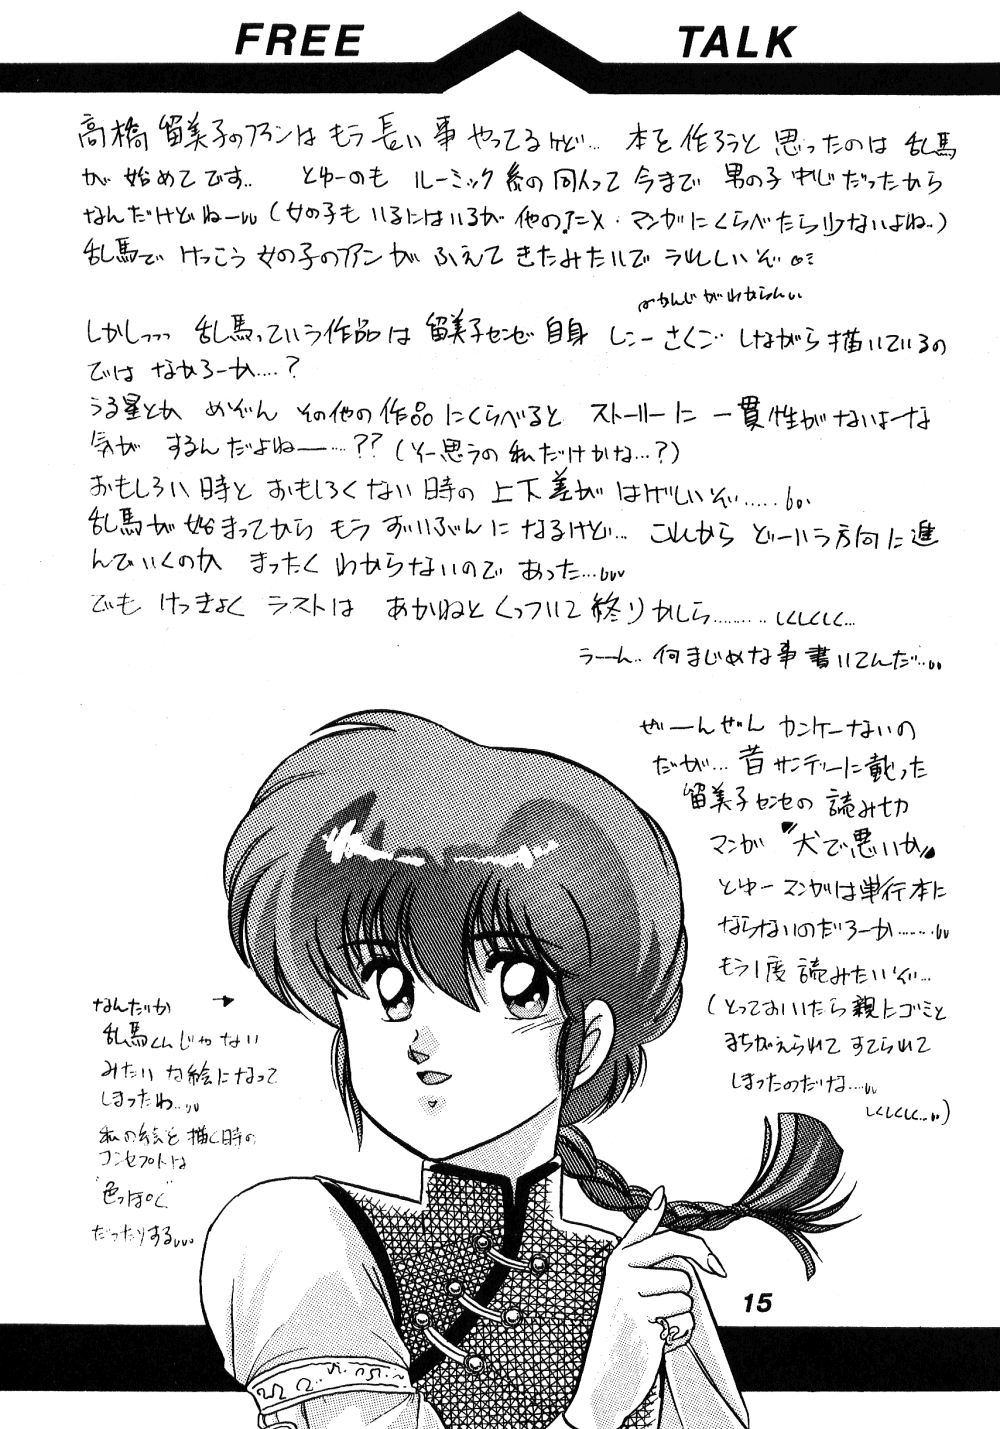 FREE TALK
高橋留美子のファンはもう長い事やってるけど… 本を作ろうと思ったのは乱馬
が始めてです.. とゆーのも ルーミック系の同人って今まで 男の子中心だったから
なんだけどねーw (女の子も いるにはいるが 他のアニメ・マンガにくらべたら少ないよね..)
乱馬で けっこう 女の子のファンが ふえて きたみたいで うれしいぞ
かんじがわからん
しかしっっっ 乱馬っていう作品は 留美子センセ自身 しこーさくご しながら描いているの
では なかろーか….?
うる星とか めぞん その他の作品にくらべると ストーリーに 一貫性がないよーな
気が するんだよねー….?? (そー思うの私だけかな…?)
おもしろい時と おもしろくない時の 上下差が はげしいぞ……
乱馬が始まってから もう ずいぶんに なるけど… これから どーいう方向に進
んでいくのか まったく わからないので あった…
でも けっきょく ラストは あかねと くっついて 終りかしら……… しくしくしく…
うーん.. 何まじめな事書いてんだ…
ぜーんぜん カンケーないの
だが… 昔サンデーに載った
留美子センセの 読み切
マンガ "犬で悪いか"
とゆー マンガは単行本に
ならないのだろーか……
もう1度 読みたいぞ…
(とっておいたら 親にゴミと
まちがえられて すてられて
しまったのだな….
しくしくしく…)
なんだか
乱馬くんじゃない
みたいな絵になって
しまったわ…
私の絵を描く時の
コンセプトは
"色っぽく"
だったりする…
15